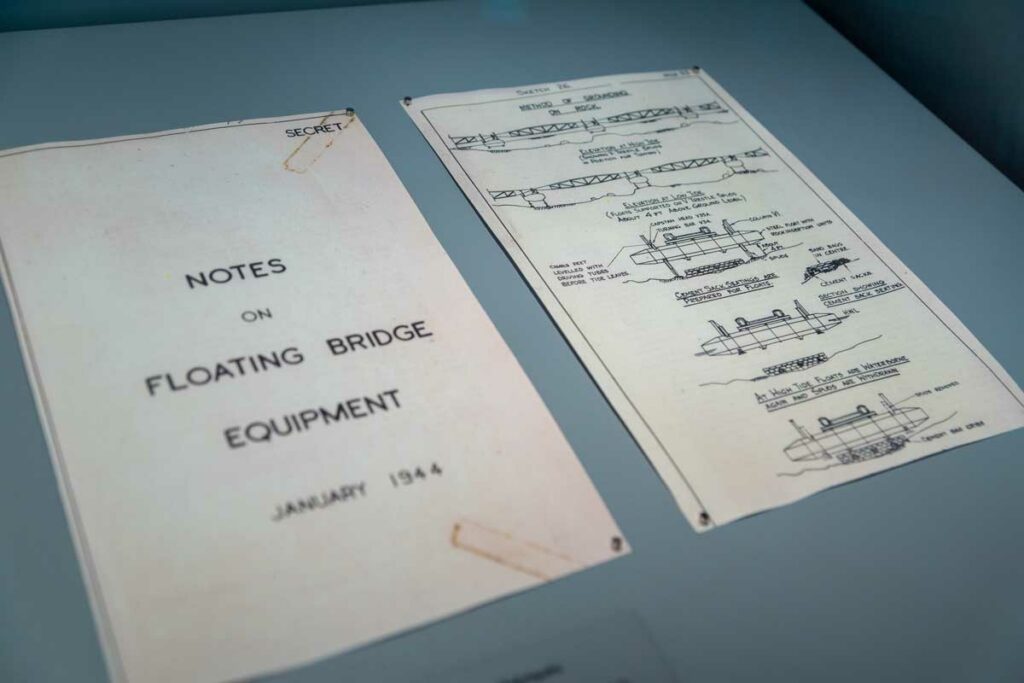 SECRET
NOTES
ON
FLOATING BRIDGE
EQUIPMENT
JANUARY 1944
SKETCH 26
METHOD OF GROUNDING
ON ROCK.
ELEVATION AT HIGH TIDE
ELEVATION AT LOW TIDE
(FLOATS SUPPORTED ON TRESTLE SPUDS
ABOUT 4 FT ABOVE GROUND LEVEL)
CAPSTAN HEAD
TURNING BAR
COLUMN
STEEL FLOAT WITH
ABOUT
4 FT
SPUDS
FEET
LEVELLED WITH
DRIVING TUBES
BEFORE TIDE LEAVES
SAND BAGS
IN CENTRE
CEMENT SACKS
CEMENT SACK SEATINGS ARE
PREPARED FOR FLOATS
SECTION SHOWING
CEMENT SACK SEATING
AT HIGH TIDE FLOATS ARE WATERBORNE
AGAIN AND SPUDS ARE WITHDRAWN
SPUDS REMOVED